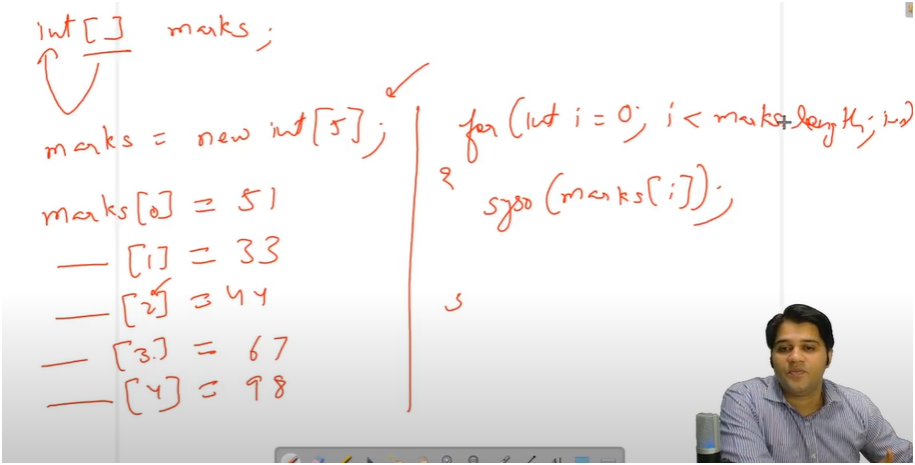 int[] marks;
marks = new int[5];
marks[0] = 51
— [1] = 33
— [2] = 44
— [3] = 67
— [4] = 98
for (int i = 0; i < marks.length; i++)
{
syso (marks[i]);
}